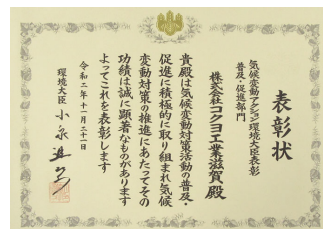 表彰状
気候変動アクション環境大臣表彰
普及・促進部門
株式会社コクヨ工業滋賀 殿
貴殿は気候変動対策活動の普及・
促進に積極的に取り組まれ気候
変動対策の推進にあたってその
功績は誠に顕著なものがあります
よってこれを表彰します
令和二年十二月二十一日
環境大臣 小泉進次郎